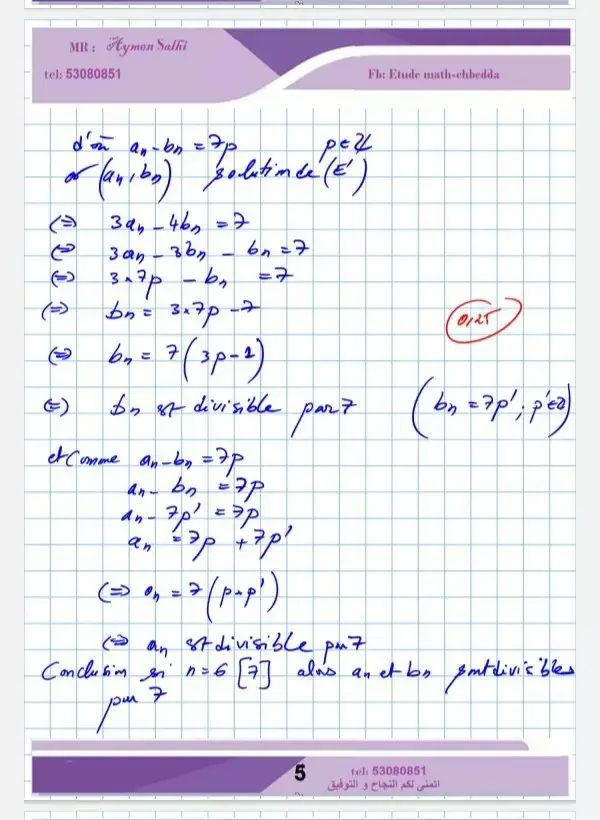 MR : Aymon Salhi
tel: 53080851
Fb: Etude math-chbedda
d'où an - bn = 7p p ∈ Z
or (an, bn) solution de (E')
(=) 3an - 4bn = 7
(=) 3an - 3bn - bn = 7
(=) 3×7p - bn = 7
(=) bn = 3×7p - 7
0,25
(=) bn = 7(3p-1)
(=) bn est divisible par 7 (bn = 7p' ; p' ∈ Z)
et Comme an - bn = 7p
an - bn = 7p
an - 7p' = 7p
an = 7p + 7p'
(=) an = 7(p+p')
(=) an est divisible par 7
Conclusion si n ≡ 6 [7] alors an et bn sont divisibles
par 7
5
tel: 53080851
اتمنى لكم النجاح و التوفيق